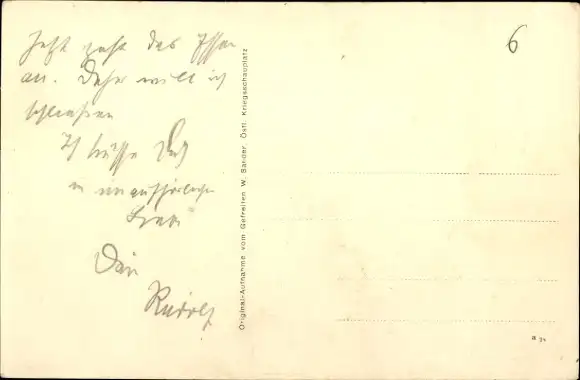 Jetzt geht das Essen
an. Daher will ich
schliessen
Ich küsse Dich
in unaufhörlicher
Liebe
Dein
Rudolf
Original-Aufnahme vom Gefreiten W. Sander. Östl. Kriegsschauplatz
6